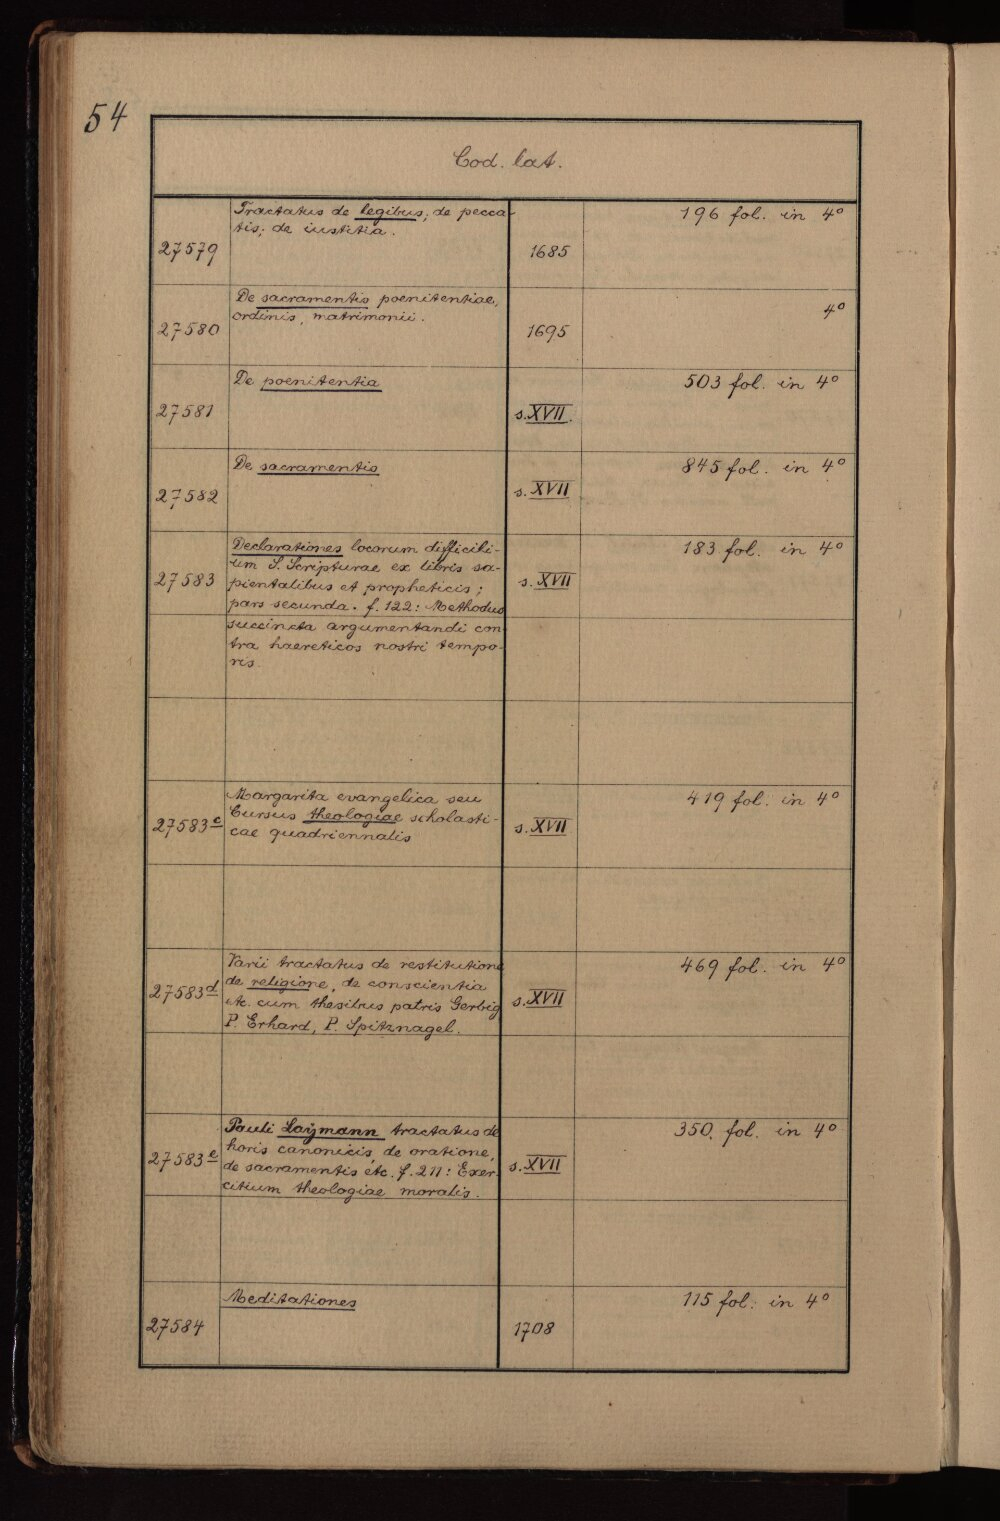 54
Cod. lat.
27579
Tractatus de legibus; de pecca-
tis; de iustitia.
1685
196 fol. in 4°
27580
De sacramentis poenitentiae,
ordinis, matrimonii.
1695
4°
27581
De poenitentia
s. XVII.
503 fol. in 4°
27582
De sacramentis
s. XVII
845 fol. in 4°
27583
Declarationes locorum difficili-
um S. Scripturae ex libris sa-
pientalibus et propheticis;
pars secunda. f. 122: Methodus
succincta argumentandi con-
tra haereticos nostri tempo-
ris.
s. XVII
183 fol. in 4°
27583c
Margarita evangelica seu
Cursus theologiae scholasti-
cae quadriennalis
s. XVII
419 fol. in 4°
27583d
Varii tractatus de restitutione
de religione, de conscientia
etc. cum thesibus patris Gerbig
P. Erhard, P. Spitznagel.
s. XVII
469 fol. in 4°
27583e
Pauli Laÿmann tractatus de
horis canonicis, de oratione,
de sacramentis etc. f. 211: Exer-
citium theologiae moralis.
s. XVII
350. fol. in 4°
27584
Meditationes
1708
115 fol. in 4°